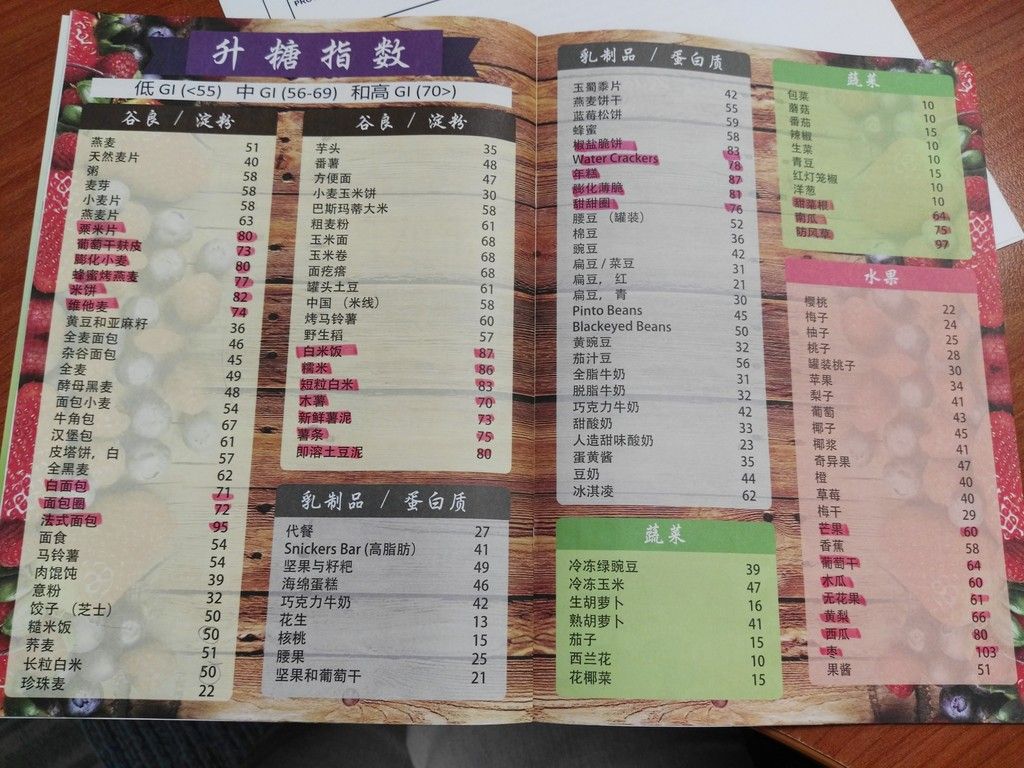 升糖指数
低 GI (<55) 中 GI (56-69) 和高 GI (70>)
谷良 / 淀粉
燕麦 51
天然麦片 40
粥 58
麦芽 58
小麦片 58
燕麦片 63
粟米片 80
葡萄干麸皮 73
膨化小麦 80
蜂蜜烤燕麦 77
米饼 82
维他麦 74
黄豆和亚麻籽 36
全麦面包 46
杂谷面包 45
全麦 49
酵母黑麦 48
面包小麦 54
牛角包 67
汉堡包 61
皮塔饼，白 57
全黑麦 62
白面包 71
面包圈 72
法式面包 95
面食 54
马铃薯 54
肉馄饨 39
意粉 32
饺子（芝士） 50
糙米饭 50
荞麦 51
长粒白米 50
珍珠麦 22
谷良 / 淀粉
芋头 35
番薯 48
方便面 47
小麦玉米饼 30
巴斯玛蒂大米 58
粗麦粉 61
玉米面 68
玉米卷 68
面疙瘩 68
罐头土豆 61
中国（米线） 58
烤马铃薯 60
野生稻 57
白米饭 87
糯米 86
短粒白米 83
木薯 70
新鲜薯泥 73
薯条 75
即溶土豆泥 80
乳制品 / 蛋白质
代餐 27
Snickers Bar (高脂肪) 41
坚果与籽粑 49
海绵蛋糕 46
巧克力牛奶 42
花生 13
核桃 15
腰果 25
坚果和葡萄干 21
乳制品 / 蛋白质
玉蜀黍片 42
燕麦饼干 55
蓝莓松饼 59
蜂蜜 58
椒盐脆饼 83
Water Crackers 78
年糕 87
膨化薄脆 81
甜甜圈 76
腰豆（罐装） 52
棉豆 36
豌豆 42
扁豆 / 菜豆 31
扁豆，红 21
扁豆，青 30
Pinto Beans 45
Blackeyed Beans 50
黄豌豆 32
茄汁豆 56
全脂牛奶 31
脱脂牛奶 32
巧克力牛奶 42
甜酸奶 33
人造甜味酸奶 23
蛋黄酱 35
豆奶 44
冰淇凌 62
蔬菜
冷冻绿豌豆 39
冷冻玉米 47
生胡萝卜 16
熟胡萝卜 41
茄子 15
西兰花 10
花椰菜 15
蔬菜
包菜 10
蘑菇 10
番茄 15
辣椒 10
生菜 10
青豆 15
红灯笼椒 10
洋葱 10
甜菜根 64
南瓜 75
防风草 97
水果
樱桃 22
梅子 24
柚子 25
桃子 28
罐装桃子 30
苹果 34
梨子 41
葡萄 43
椰子 45
椰浆 41
奇异果 47
橙 40
草莓 40
梅干 29
芒果 60
香蕉 58
葡萄干 64
木瓜 60
无花果 61
黄梨 66
西瓜 80
枣 103
果酱 51